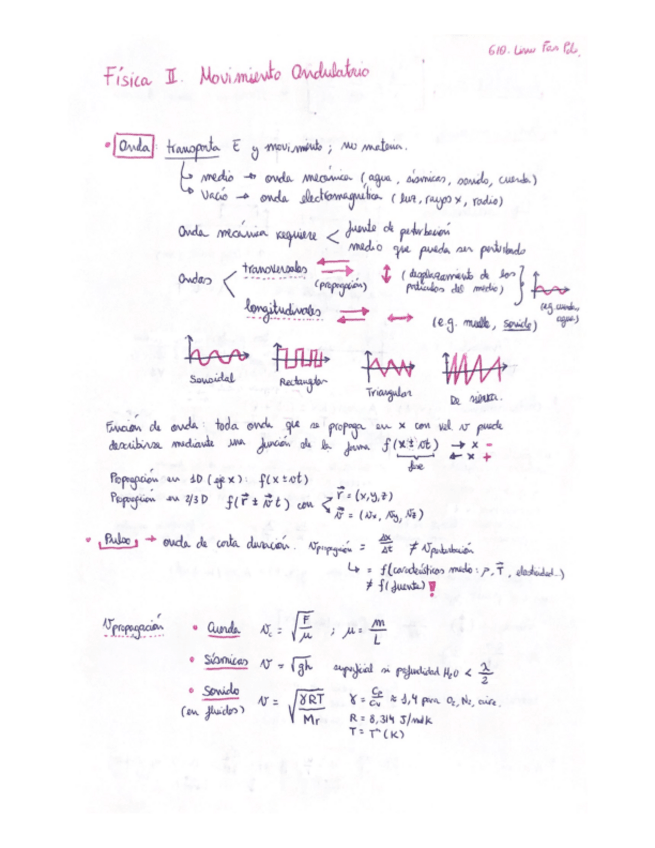 Física II. Movimiento Ondulatrio
• Onda: transporta E y movimiento; no materia.
↳ medio → onda mecánica (agua, sísmicas, sonido, cuerda)
↳ Vacío → onda electromagnética (luz, rayos x, radio)
Onda mecánica requiere < fuente de perturbación
medio que pueda ser perturbado
Ondas < transversales (propagación) (desplazamiento de las partículas del medio)
(eg. cuerda, agua)
longitudinales (e.g. muelle, sonido)
Senoidal Rectangular Triangular De sierra.
Función de onda: toda onda que se propaga en x con vel v puede
describirse mediante una función de la forma f(x ± vt) → x -
← x +
fase
Propagación en 1D (eje x): f(x ± vt)
Propagación en 2/3D f(r⃗ ± v⃗t) con < r⃗ = (x, y, z)
v⃗ = (vx, vy, vz)
• Pulso → onda de corta duración. v propagación = Δx/Δt ≠ v perturbación
↳ = f(características medio: ρ, T, elasticidad...)
≠ f(fuente)!
v propagación
• Cuerda v꜀ = √(F/μ) ; μ = m/L
• Sísmicas v = √gh superficial si profundidad H₂O < λ/2
• Sonido v = √(γRT/Mr) γ = Cp/Cv ≈ 1,4 para O₂, N₂, aire.
(en fluidos) R = 8,314 J/molK
T = Tª (K)